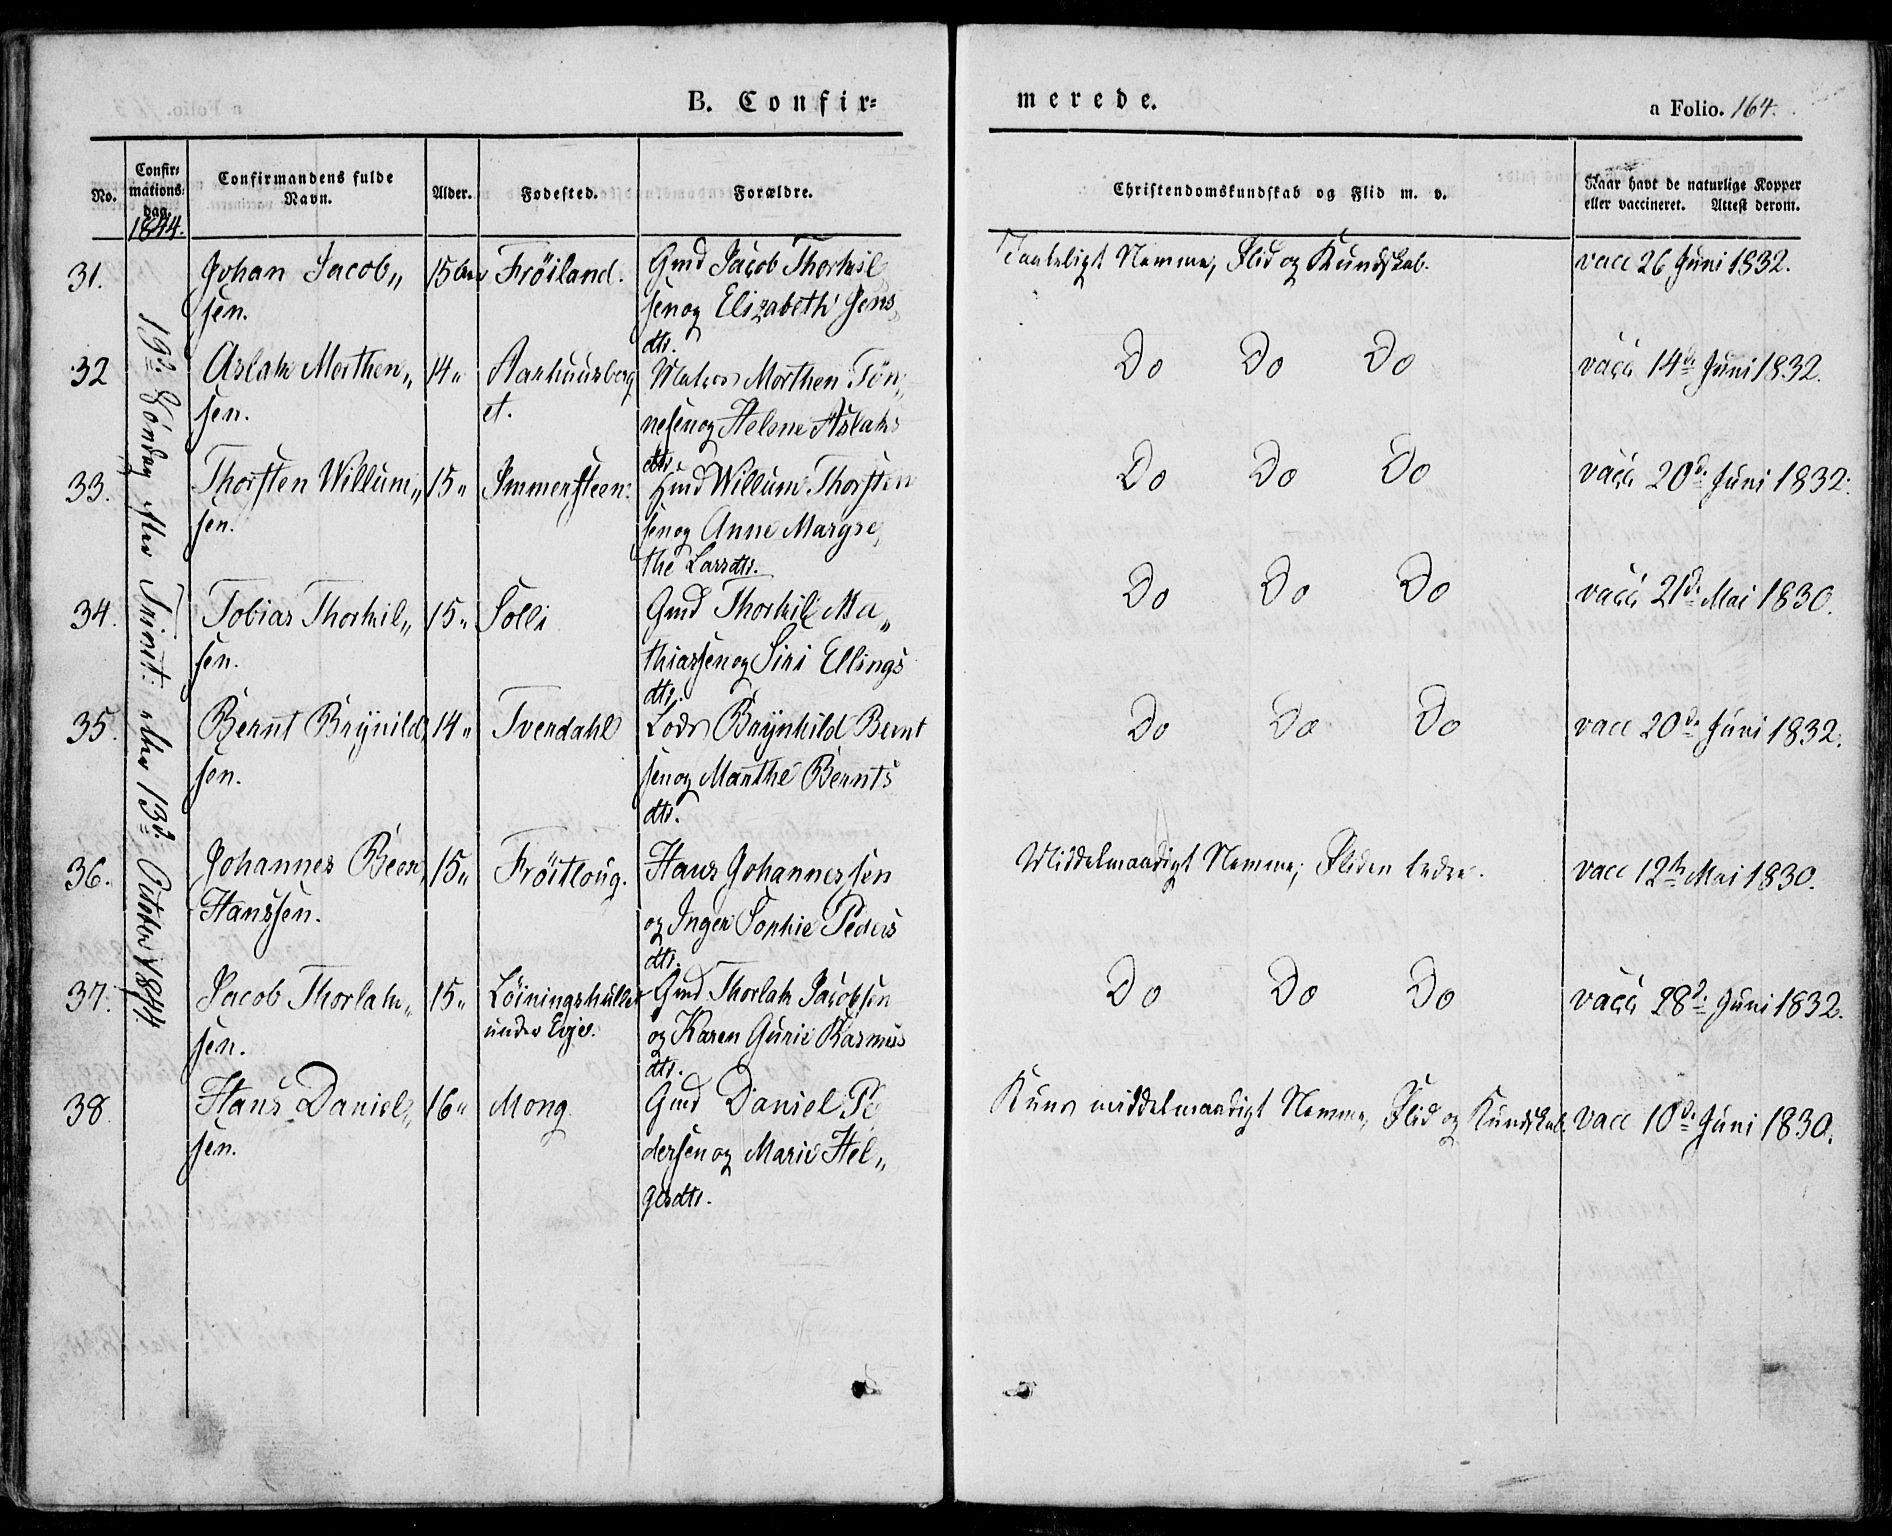 B. Confir=
merede.
a Folio. 164.
No.
Confir=
mations=
dag.
1844.
Confirmandens fulde
Navn.
Alder.
Fodested.
Forældre.
Christendomskundskab og Flid m. v.
Naar havt de naturlige Kopper
eller vaccineret. Attest derom.
19de Söndag efter Trinit: eller 13de October 1844.
31. Johan Jacob„ 15 Fröiland. Gmd Jacob Thorkil
sen. senog Elizabeth Jens
dtr.
Taaleligt Nemme, Flid og Kundskab. vacc 26 Juni 1832.
32 Aslak Morthen„ 14„ Aarhuusberg Matros Morthen Tön„
sen. et. nesenog Helene Aslaks
dtr.
Do Do Do vacc 14de Juni 1832.
33. Thorsten Willum„ 15„ Immersteen. Hmd Willum Thorsten
sen. senog Anne Margre„
the Larsdtr.
Do Do Do vacc 20de Juni 1832.
34. Tobias Thorkil„ 15„ Solli Gmd Thorkil Ma„
sen. thiassenog Siri Ellings
dtr.
Do Do Do vacc 21de Mai 1830.
35. Bernt Brynild„ 14„ Tvendahl Lods Brynhild Bernt
sen. senog Marthe Bernts
dtr.
Do Do Do vacc 20de Juni 1832.
36. Johannes Beer, 15„ Fröitloug. Hans Johannessen
Hanssen. og Inger Sophie Peders
dtr.
Middelmaadigt Nemme, Fliden bedre. vacc 12te Mai 1830.
37. Jacob Thorlak„ 15„ Löiningshullet Gmd Thorlak Jacobsen
sen. under Eeje. og Karen Gurie Rasmus
dtr.
Do Do Do vacc 28de Juni 1832.
38 Hans Daniel„ 16„ Mong Gmd Daniel Pe
sen. dersenog Marie Hel„
gesdtr.
Kun middelmaadigt Nemme, Flid og Kundskab. vacc 10de Juni 1830.